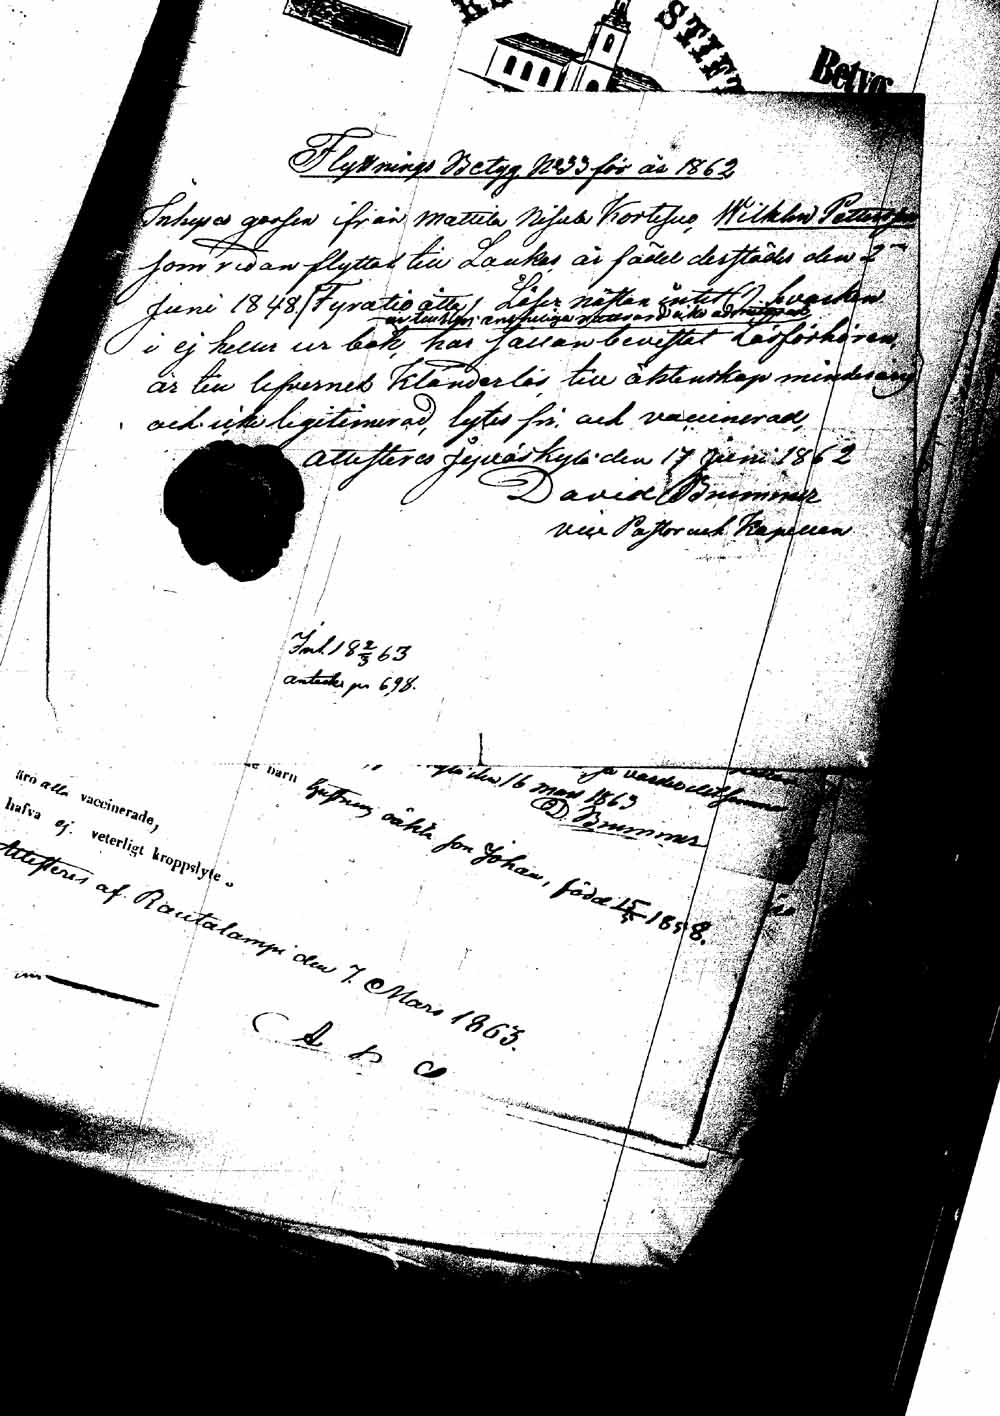 STIFT
Betyg
Flyttnings Betyg No 33 för år 1862
Inhyses gossen ifrån Mattila Nisula Kortesuo, Wilhelm Pettersson
som redan flyttat till Laukas är född derstädes den 2
Juni 1848 /Fyratio åtta/ Läser nästan intet
i ej heller ur bok, har sällan bevistat Läsförhören,
är till lefvernet Klanderlös, till äktenskap minderårig
och icke legitimerad, lytes fri, och vaccinerad,
Attesteras Jyväskylä den 17 Juni 1862
David Brummer
vice Pastor och Kapellan
Inl. 18 2/3 63
anteckn pn 698.
den 16 mars 1863
D. Brummer
äro alla vaccinerade,
hafva ej veterligt kroppslyte.
barn
äkta son Johan, född 15/5 1858.
Attesteres af Rautalampi den 7. Mars 1863.